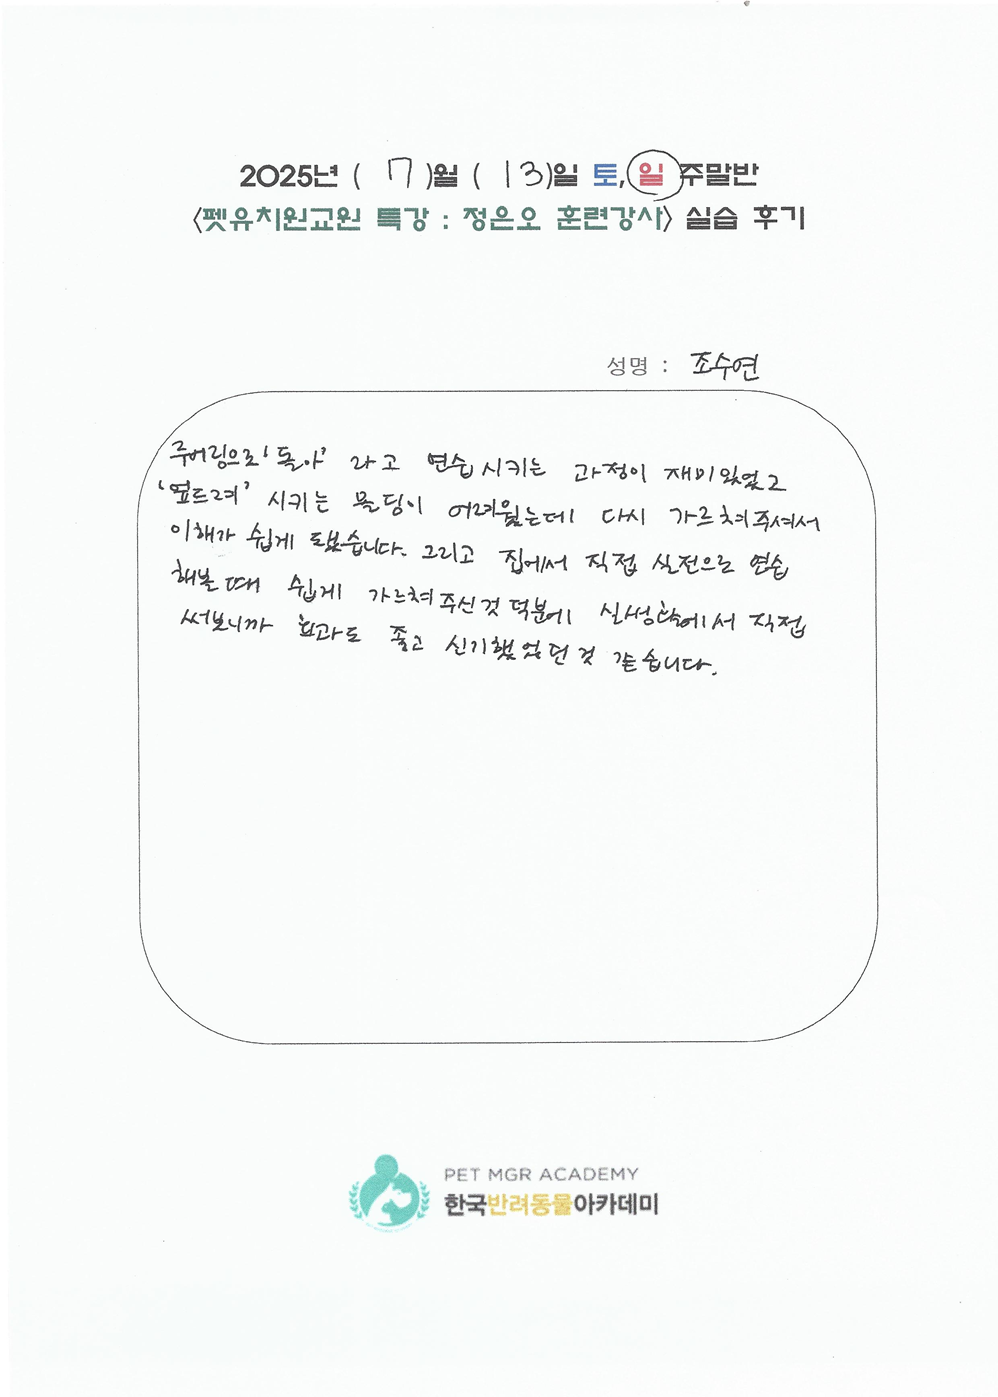 2025년 ( 7 )월 ( 13 )일 토, 일 주말반
<펫유치원교원 특강 : 정은오 훈련강사> 실습 후기
성명 : 조수연
루어링으로 '돌아' 라고 연습시키는 과정이 재미있었고
'엎드려' 시키는 몰딩이 어려웠는데 다시 가르쳐주셔서
이해가 쉽게 됐습니다. 그리고 집에서 직접 실전으로 연습
해볼 때 쉽게 가르쳐주신것 덕분에 실생활에서 직접
써보니까 효과도 좋고 신기했었던것 같습니다.
PET MGR ACADEMY
한국반려동물아카데미